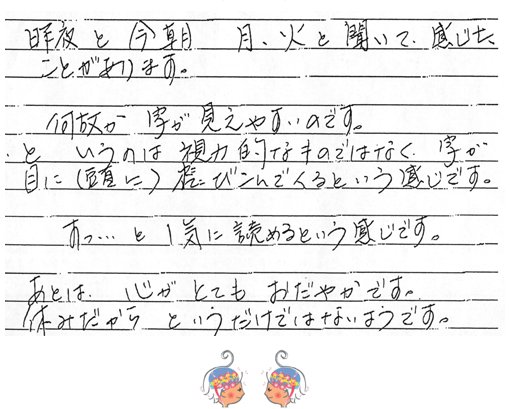 昨夜と今朝 月、火と聞いて、感じた
ことがあります。
何故か 字が見えやすいのです。
と いうのは視力的なものではなく、字が
目に(頭に)飛びこんでくるという感じです。
すっ…と1気に読めるという感じです。
あとは、心がとてもおだやかです。
休みだから というだけではないようです。